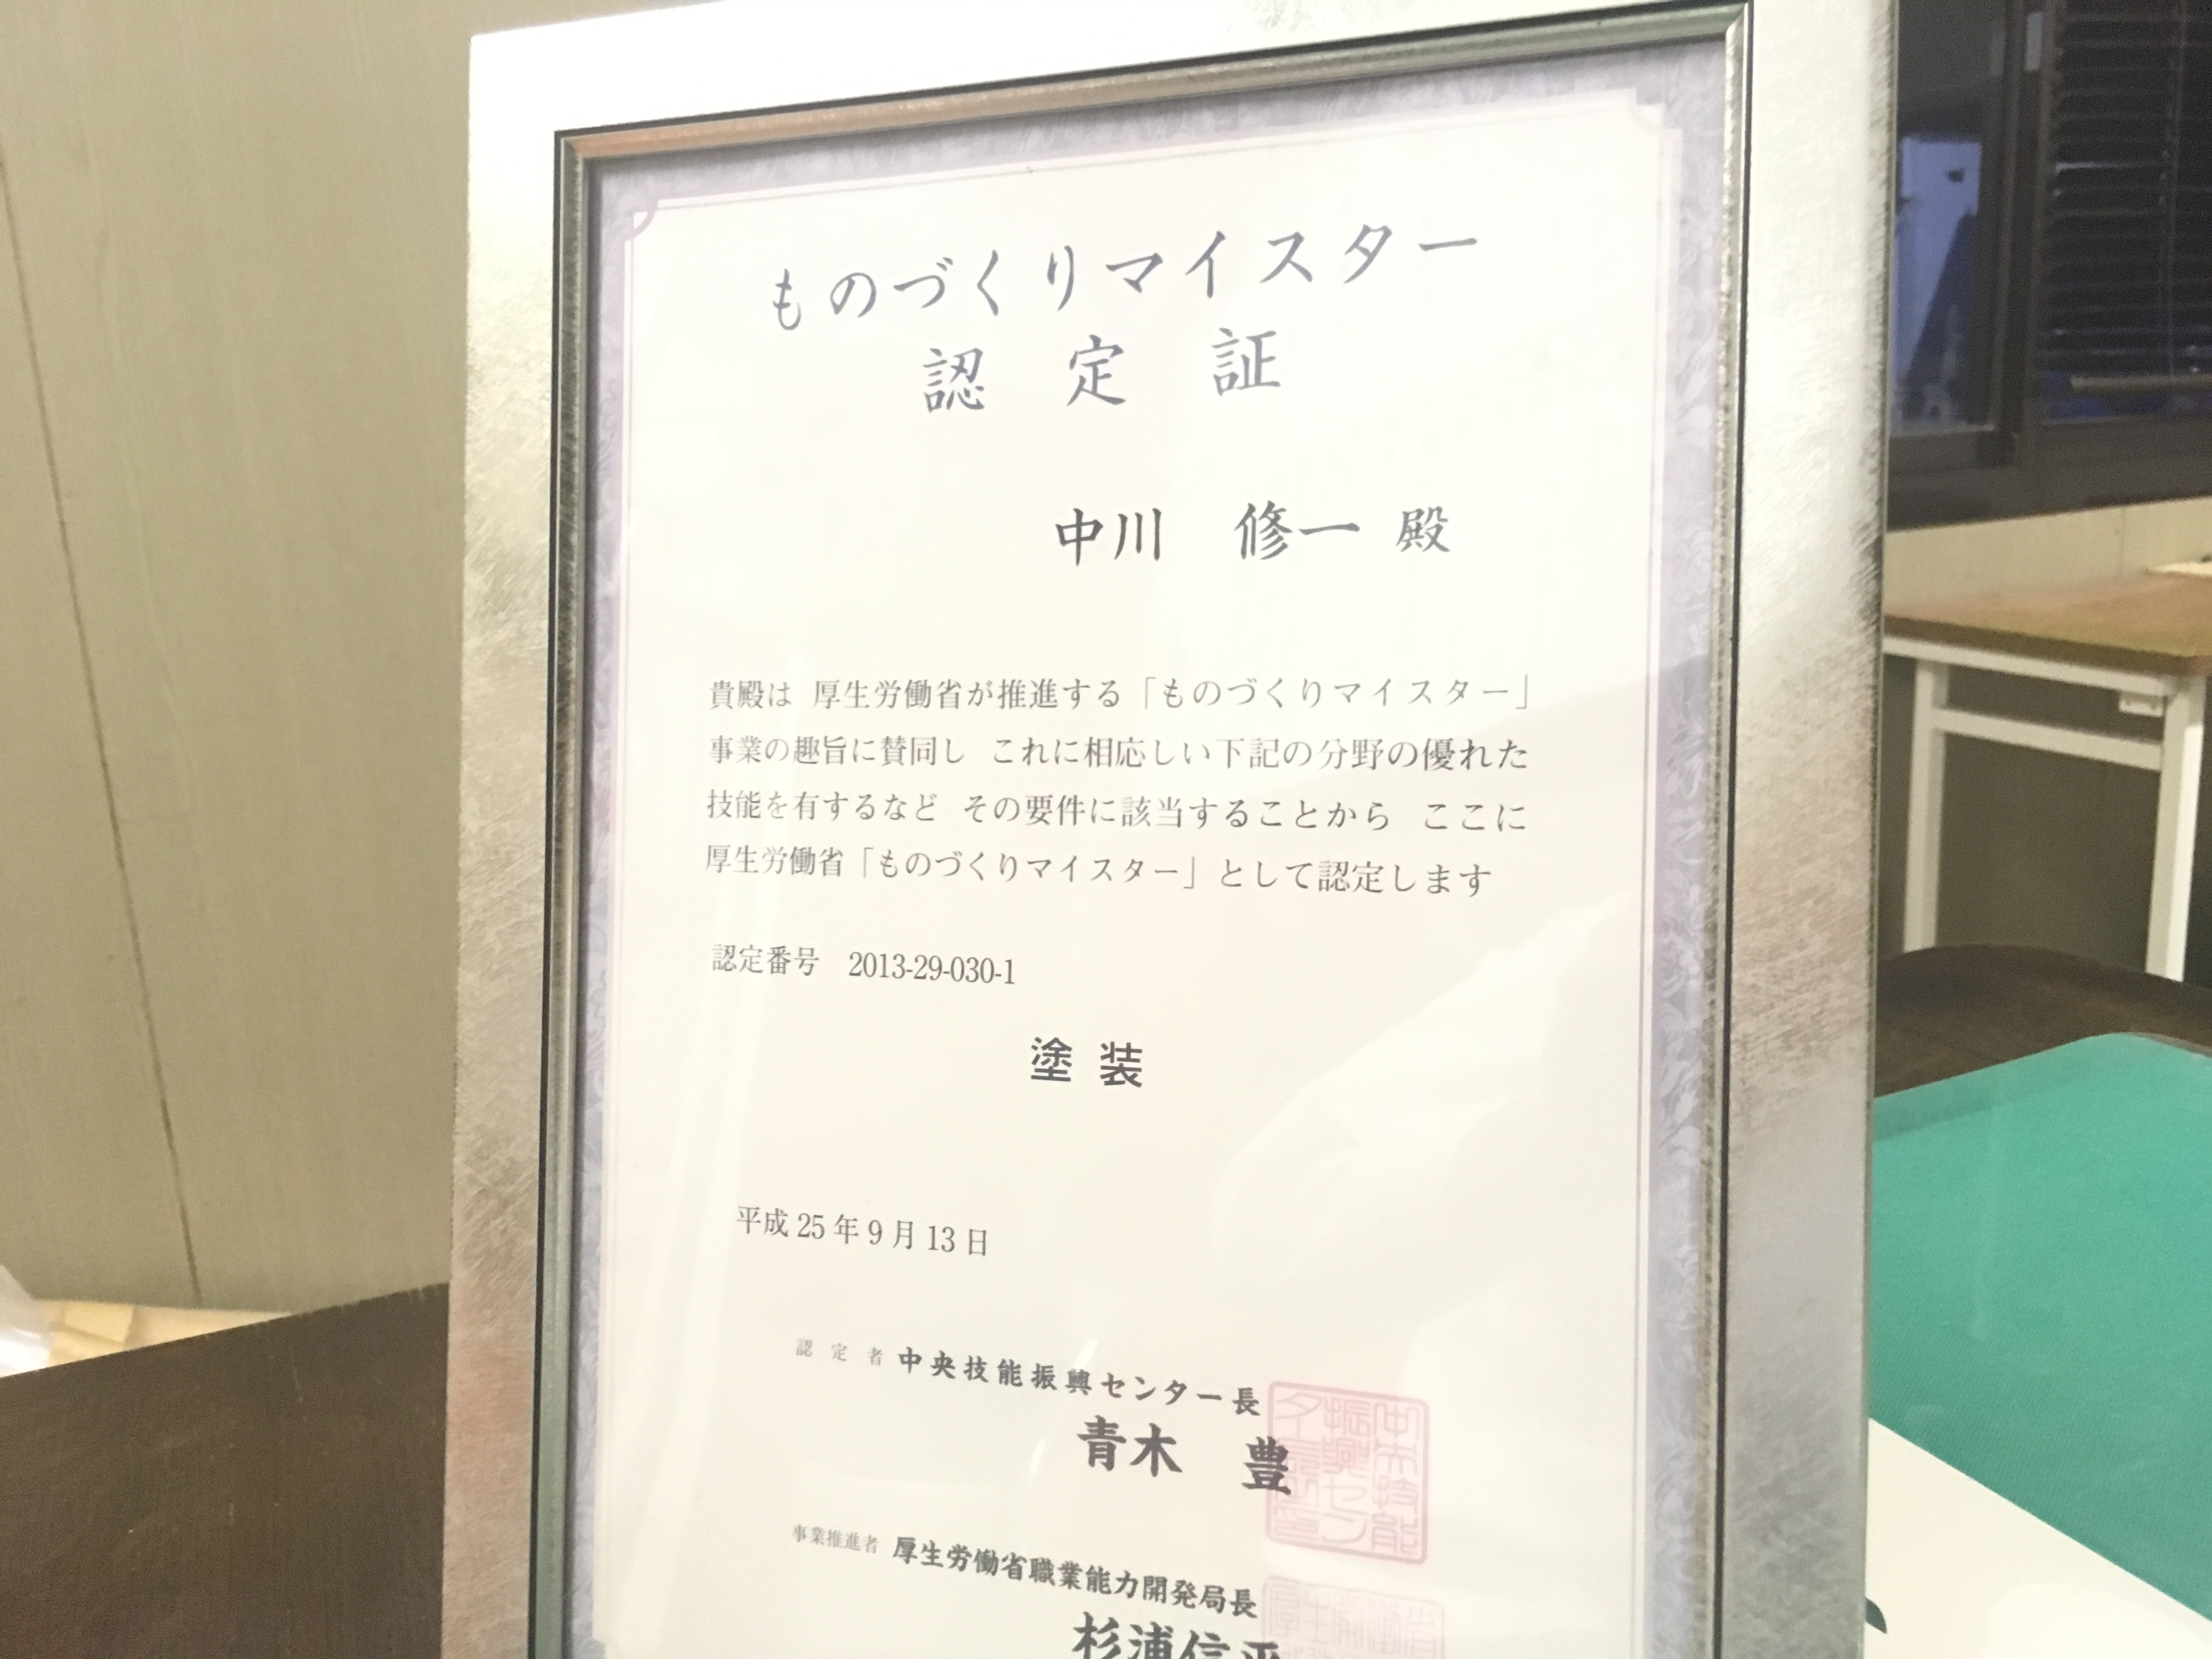 ものづくりマイスター
認 定 証
中川 修一 殿
貴殿は 厚生労働省が推進する「ものづくりマイスター」
事業の趣旨に賛同し これに相応しい下記の分野の優れた
技能を有するなど その要件に該当することから ここに
厚生労働省「ものづくりマイスター」として認定します
認定番号 2013-29-030-1
塗 装
平成 25 年 9 月 13 日
認 定 者 中央技能振興センター長
青木 豊
事業推進者 厚生労働省職業能力開発局長
杉浦信平